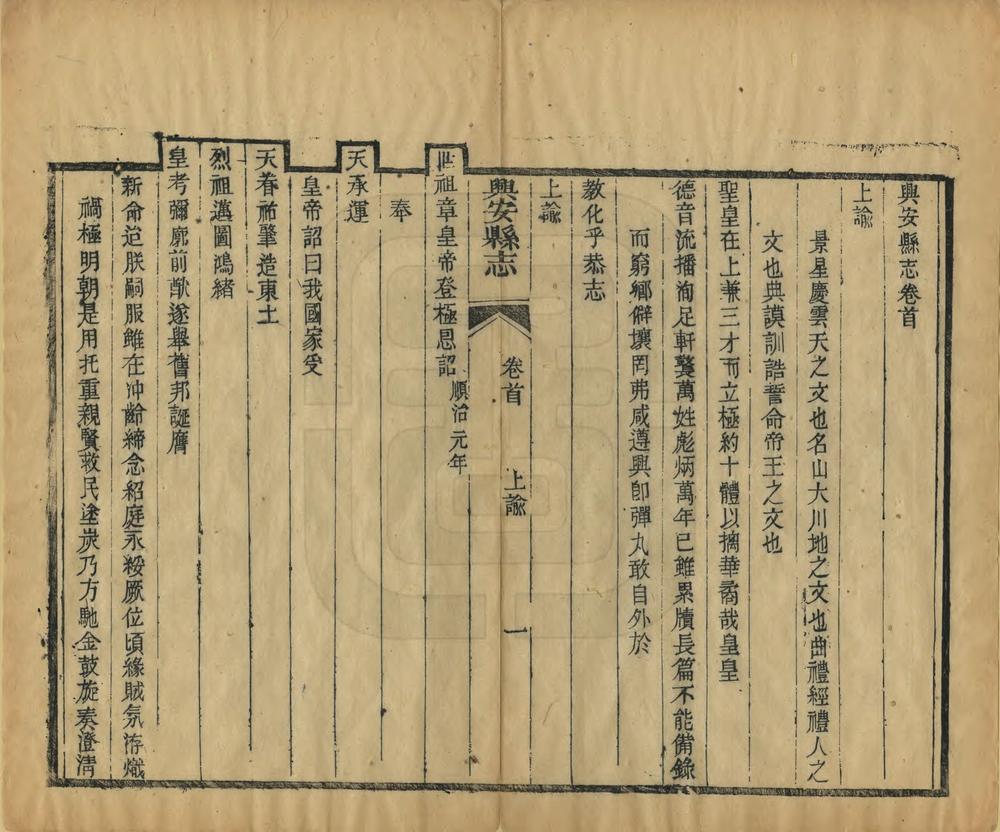 興安縣志卷首
上諭
景星慶雲天之文也名山大川地之文也曲禮經禮人之
文也典謨訓誥誓命帝王之文也
聖皇在上兼三才而立極約十體以摛華矞哉皇皇
德音流播洵足軒鼚萬姓彪炳萬年已雖累牘長篇不能備錄
而窮鄉僻壤罔弗咸遵興卽彈丸敢自外於
教化乎恭志
上諭
興安縣志 卷首 上諭 一
世祖章皇帝登極恩詔順治元年
奉
天承運
皇帝詔曰我國家受
天眷祐肇造東土
烈祖邁圖鴻緒
皇考彌廓前猷遂舉舊邦誕膺
新命迨朕嗣服雖在冲齡締念紹庭永綏厥位頃緣賊氛洊熾
禍極明朝是用托重親賢救民塗炭乃方馳金鼓旋奏澄清